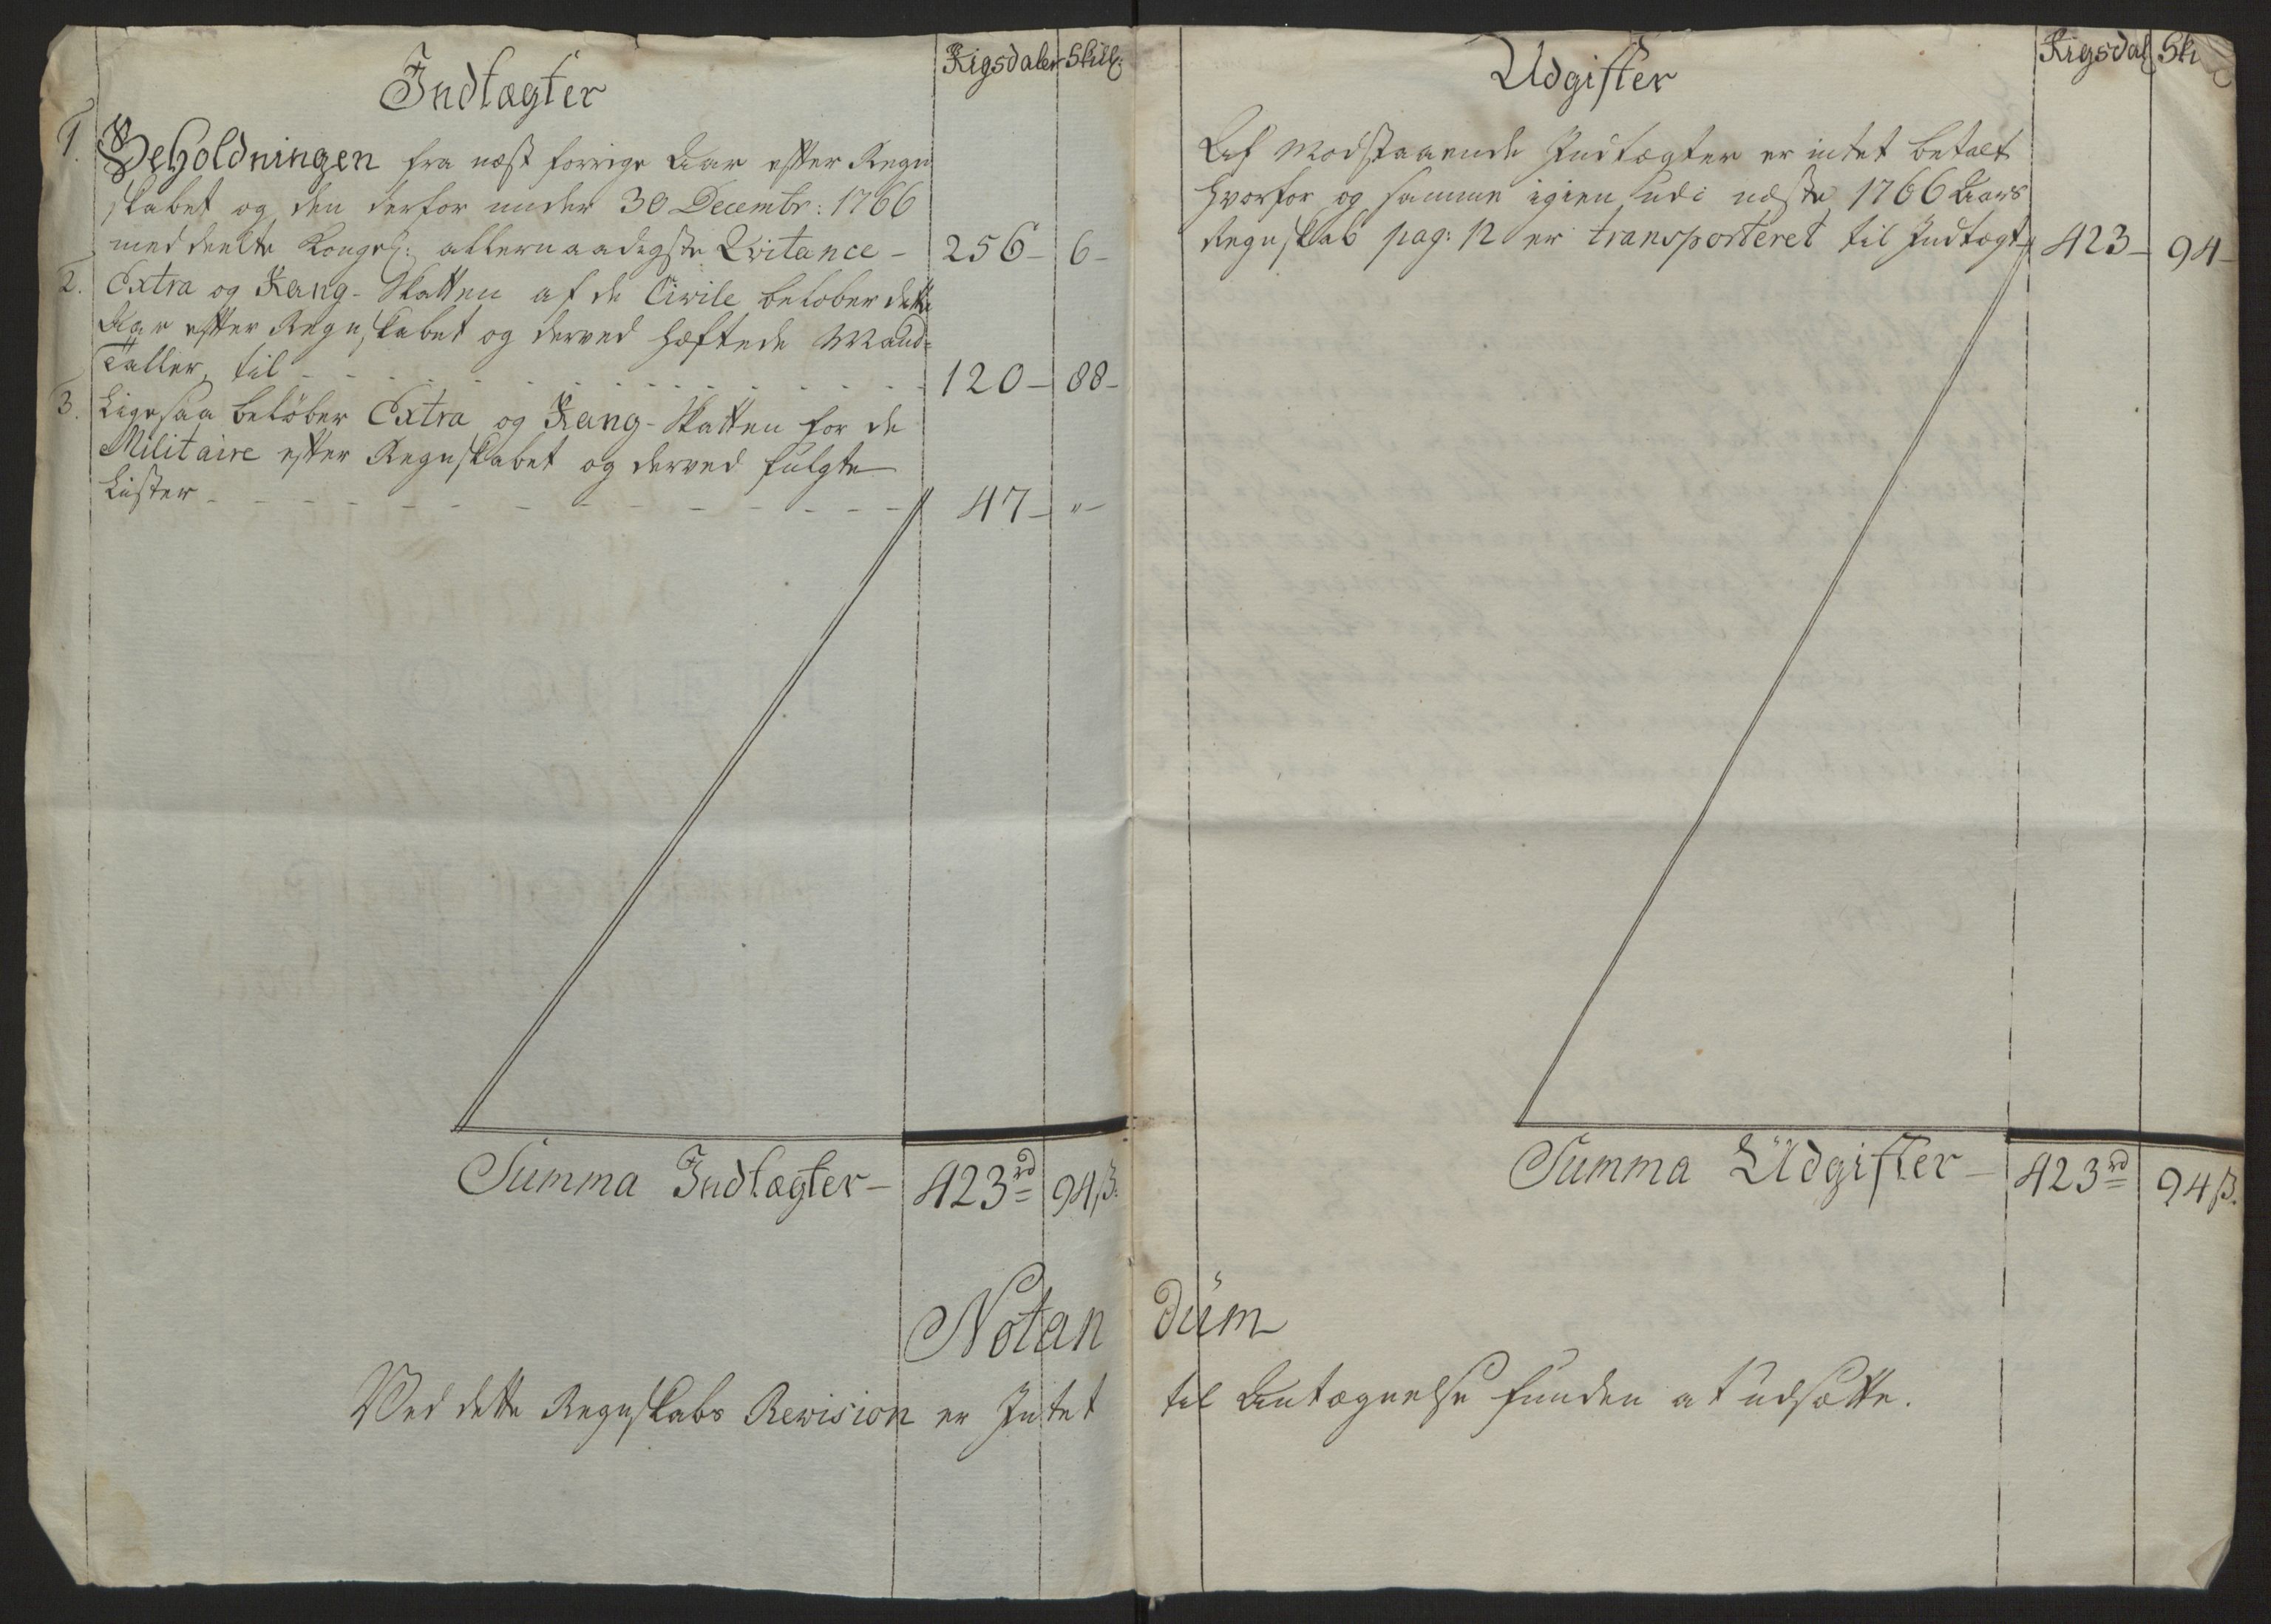 Indtægter
Rigsdaler Skill:
1. Beholdningen fra næst forrige Aar efter Regn
skabet og den derfor under 30 Decembr: 1766
meddeelte Kongel: allernaadigste Qvitance - 256 - 6 -
2. Extra og Rang-Skatten af de Civile beløber dette
Aar efter Regnskabet og derved hæftede Mand-
Taller, til - 120 - 88 -
3. Ligesaa beløber Extra og Rang-Skatten for de
Militaire efter Regnskabet og derved fulgte
Lister - 47 - " -
Summa Indtægter - 423 rd 94 ß:
Udgifter
Rigsdal Sk
Af modstaaende Indtægter er intet betalt
hvorfor og samme igien udi næste 1766 Aars
Regnskab pag: 12 er transporteret til Indtægt - 423 - 94 -
Summa Udgifter - 423 rd 94 ß.
Notandum
Ved dette Regnskabs Revision er Intet til Antægnelse funden at udsætte.